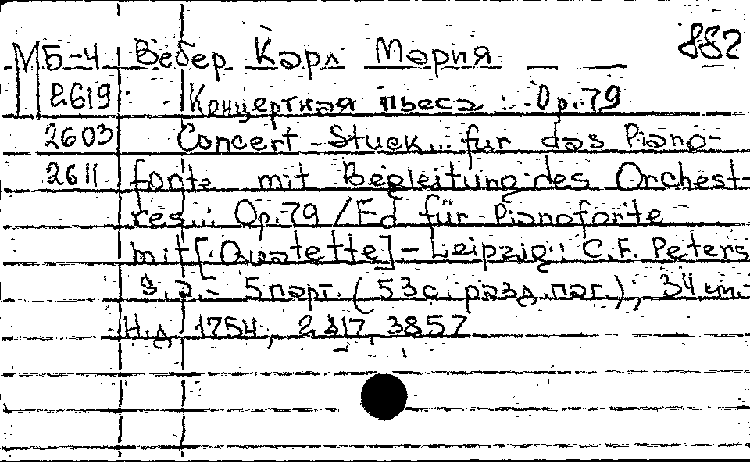 882
МБ-4 Вебер Карл Мария
2619 Концертная пьеса : Op. 79
2603 Concert-Stück.. für das Piano-
2611 forte mit Begleitung des Orchest-
res..: Op. 79 / Ed für Pianoforte
mit [Quatette] - Leipzig: C.F. Peters
S. a. - 5 парт. (53 с. разд. паг.); 34 cm.
Н.д. 1754, 2317, 3857